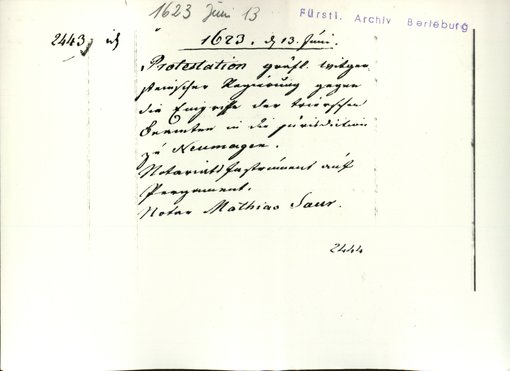 1623 Juni 13
Fürstl. Archiv Berleburg
2443
1623. d 13. Juni.
Protestation gräfl. witgen
steinischer Regierung gegen
die Eingriffe der trierschen
Beamten in die jurisdiction
zu Neumagen.
Notariats Instrument auf
Pergament.
Notar Mathias Saur.
2444